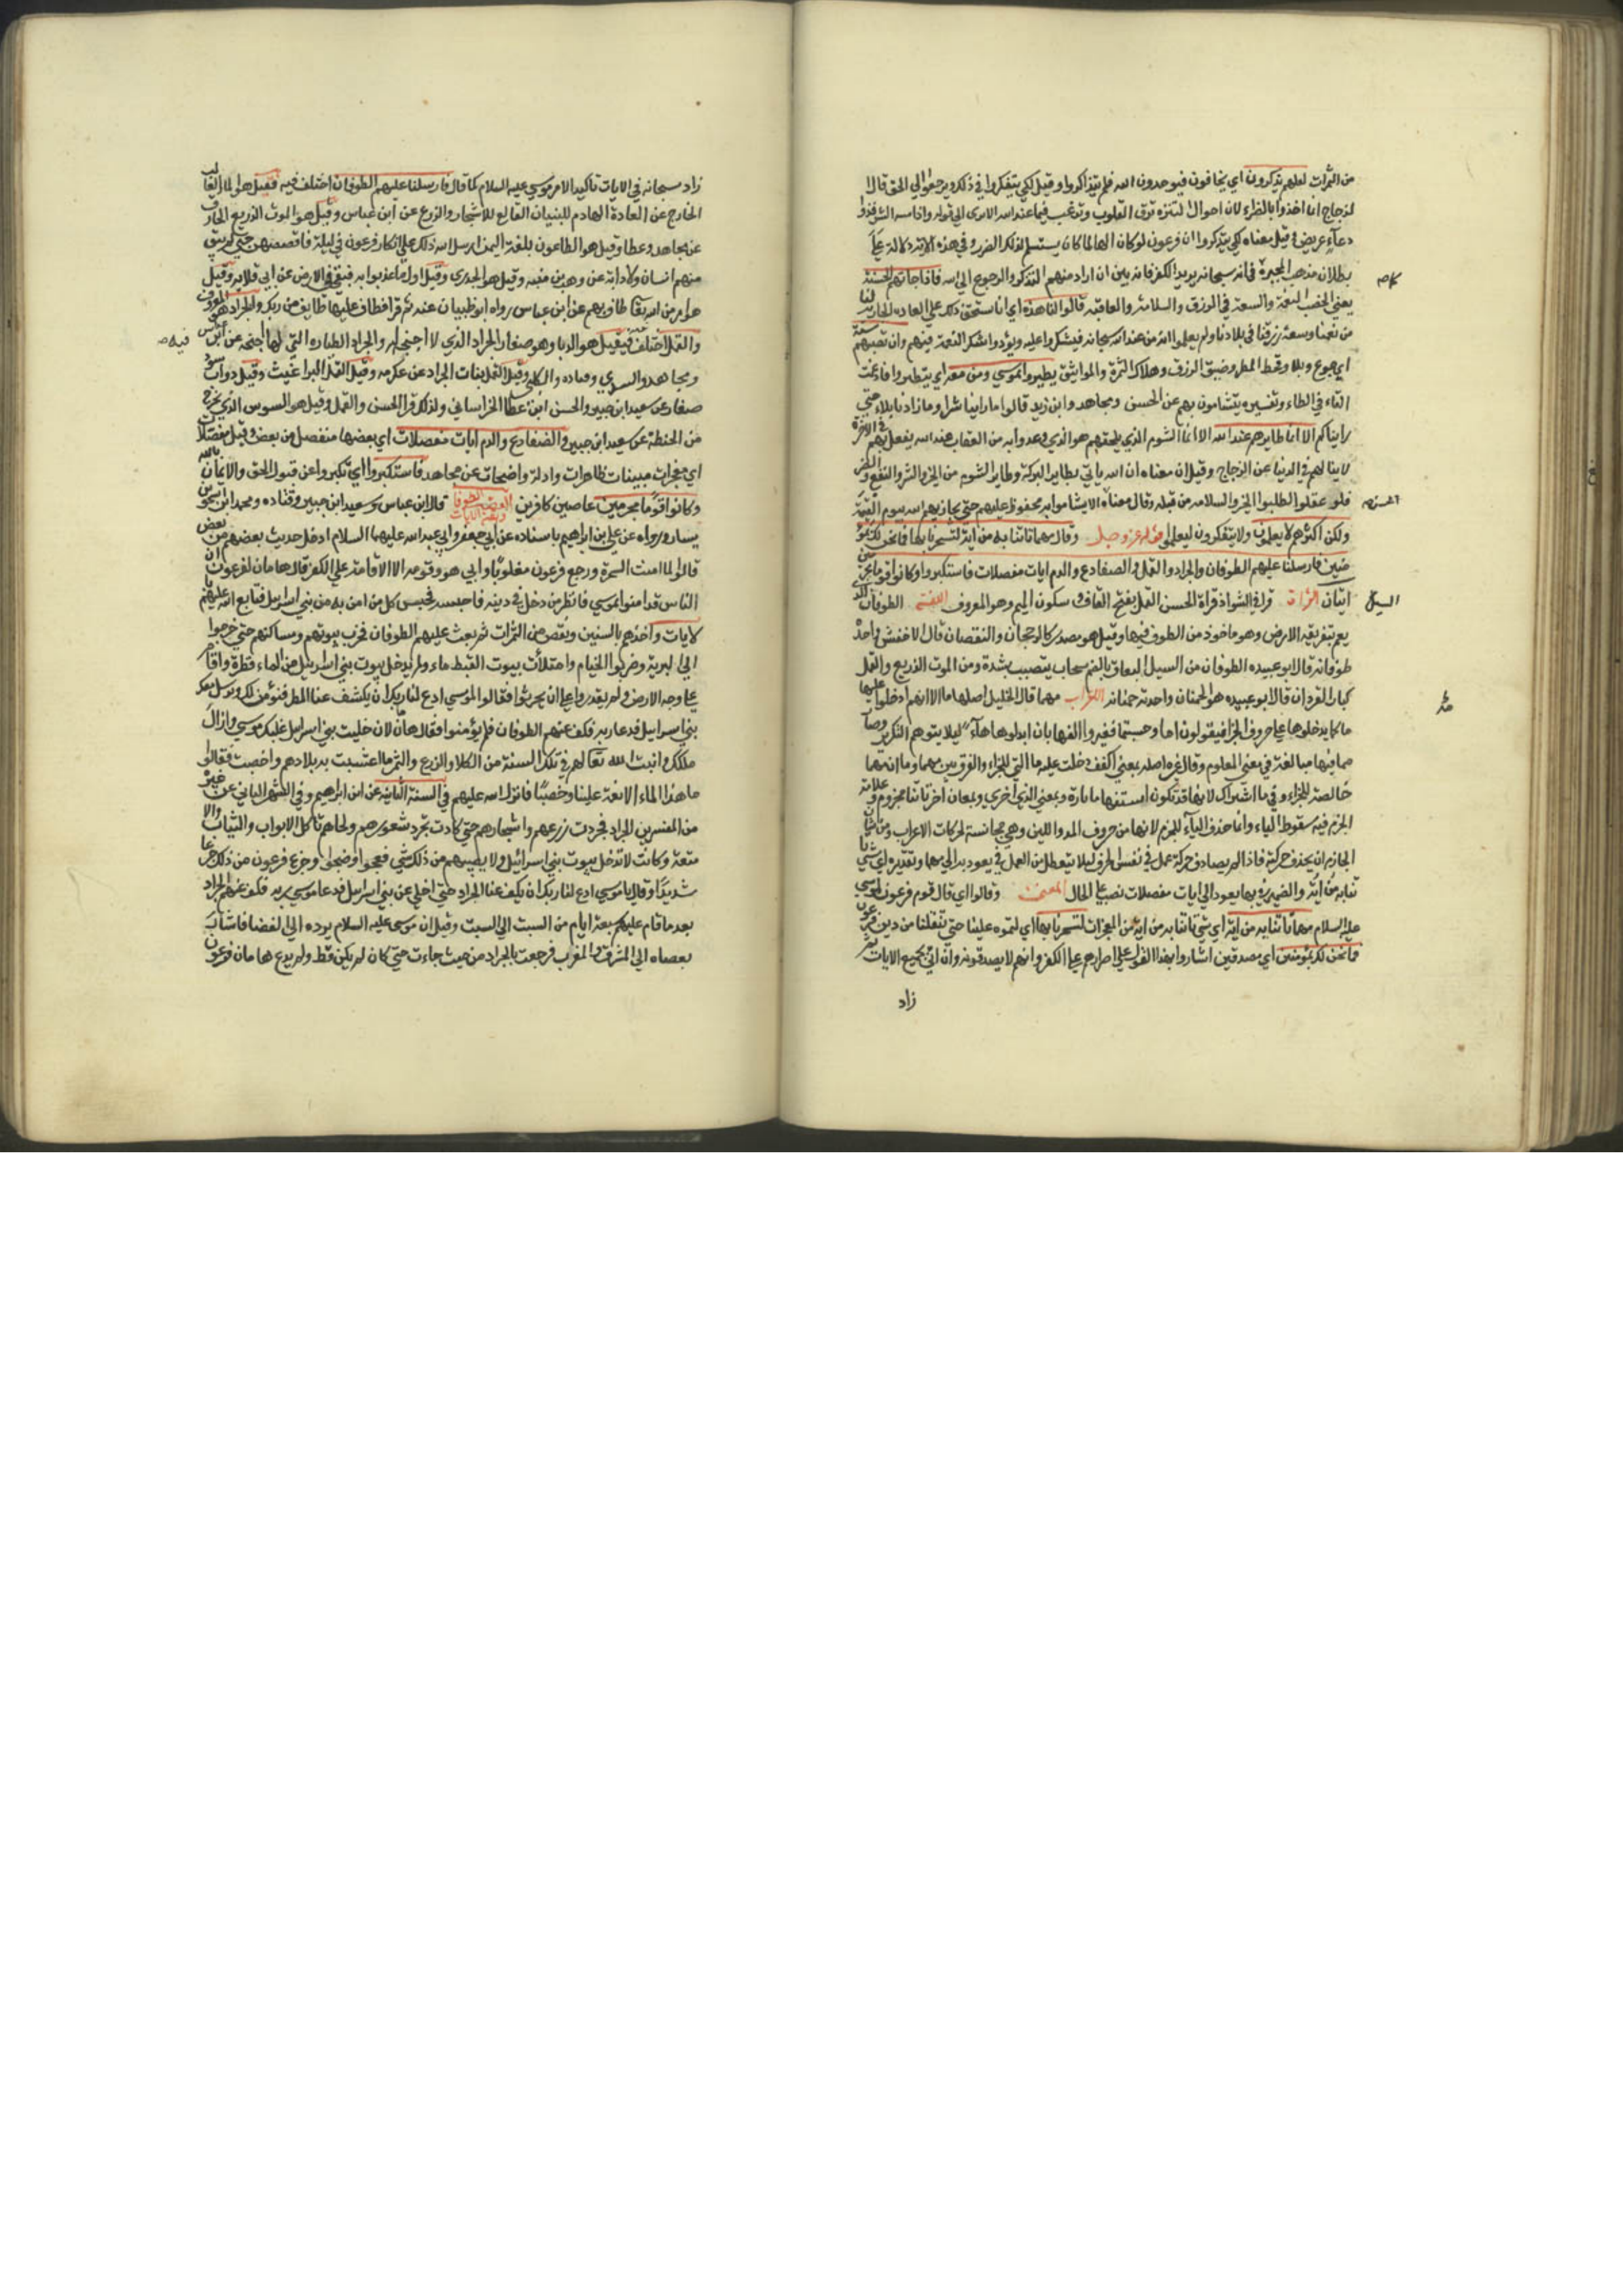 من الثمرات لعلهم يذكرون اي يخافون فيوحدون الله فلم يتذاكروا وقيل لكي يتفكروا في ذلك ويرجعوا الي الحق قال ا
لزجاج انما اخذوا بالضراء لان احوال الشدة ترق القلوب وترغب فيما عند الله الا ترى الي قوله واذا مسه الشر فذوا
دعآء عريض وقيل معناه لكي يتذكروا ان فرعون لو كان الها لما كان يستسلم لذلك الضرر وفي هذه الاية دلالة علي
بطلان مذهب المجبرة في انه سبحانه يريد الكفر فانه بين انه اراد منهم التذكر والرجوع الي الله فاذا جاءتهم الحسنة
يعني الخصب النعمة والسعة في الرزق والسلامة والعافية قالوا لنا هذه اي انا نستحق ذلك علي العادة الجارية لنا
من نعمنا وسعة رزقنا في بلادنا ولم يعلموا انه من عند الله سبحانه فيشكروا عليه ويؤدوا شكر النعمة فيهم وان تصبهم سيئة
اي جوع وبلاء وقحط المطر وضيق الرزق وهلاك الثمرة والمواشي يطيروا بموسي ومن معه اي يتطيروا فادغمت
التاء في الطاء وتفسيره يتشامون بهم عن الحسن ومجاهد وابن زيد قالوا ما راينا شرا وما زاد نا بلاء حتي
رايناكم الا انما طايرهم عند الله الا انما الشوم الذي يلحقهم هو الذي وعدوا به من العقاب عند الله يفعل بهم في الاخرة
لا ينالهم في الدنيا عن الزجاج وقيل ان معناه ان الله ياتي بطاير البركة وطاير الشوم من الخير والشر والنفع والضر
فلو عقلوا لطلبوا الخير والسلامه من قبله وقال معناه الا يتشاموا به محفوظ عليهم حتي يجازيهم الله به يوم القيمة
ولكن اكثرهم لا يعلمون ولا يتفكرون ليعلموا قوله عز وجل وقالوا مهما تاتنا به من اية لتسحرنا بها فما نحن لك بمؤ
منين فارسلنا عليهم الطوفان والجراد والقمل والضفادع والدم ايات مفصلات فاستكبروا وكانوا قوما مجرمين
ايتان القراة قرا في الشواذ قراة الحسن القمل بفتح القاف وسكون الميم وهو المعروف اللغة الطوفان السيل الذي
يعم بتغريقه الارض وهو ماخوذ من الطوف فيها وقيل هو مصدر كالرجحان والنقصان قال الاخفش واحدة
طوفانه قال ابو عبيده الطوفان من السيل البعاق بالضم سحاب يتصبب بشدة ومن الموت الذريع والقمل
كبار القردان قال ابو عبيده هو الحمنان واحدته حمنانه الاعراب مهما قال الخليل اصلها ما الا انهم ادخلوا عليها
ما كما يدخلونها علي حروف الجزا فيقولون اما وحيثما فغيروا الفها بان ابدلوها هآء كيلا يتوهم التكرير وصا
مما فيها مبالغة في معني المعلوم وقال غيره اصله بمعني اكفف دخلت عليه ما التي للجزاء والفرق بين مهما وما ان مهما
خالصة للجزاء وفي ما اشتراك لانها قد تكون استفهاما تارة وبمعني الذي اخري وبمعان اخر تاتنا مجزوم وعلامة
الجزم فيه سقوط الياء وانما حذف الياء للجزم لانها من حروف المد واللين وهي مجانسة لحركات الاعراب ومن شان
الجازم ان يحذف حركة فاذا لم يصادف حركة عمل في نفس الحرف ليلا يتعطل من العمل في يعود به الي مهما وتقديره اي شي
تاتنا به من اية والضمير في بها يعود الي ايات مفصلات نصب علي الحال المعنى وقالوا اي قال قوم فرعون لموسي
عليه السلام مهما تاتنا به من اية اي شي تاتنا به من اية من المعجزات لتسحرنا بها اي لتموه علينا حتي تنقلنا من دين فرعون
فما نحن لك بمؤمنين اي مصدقين اشاروا بهذا القول علي اصرارهم علي الكفر وانهم لا يصدقونه وان اتي بجميع الايات ثم
زاد
زاد سبحانه في الايات تاكيدا لامر موسي عليه السلام كما قال فارسلنا عليهم الطوفان اختلف فيه فقيل هو الماء الغالب
الخارج عن العادة الهادم للبنيان القالع للاشجار والزرع عن ابن عباس وقيل هو الموت الذريع الجارف
عن مجاهد وعطا وقيل هو الطاعون بلغة اليمن ارسل الله ذلك علي ابكار فرعون في ليلة فاقصصهن حتي لم يبق
منهم انسان ولا دابة عن وهب بن منبه وقيل هو الجدري وقيل اول ما عذبوا به فبقي في الارض عن ابي قلابه وقيل
هو امر من الله تعالي طاف بهم عن ابن عباس رواه ابو ظبيان عنه ثم قرا فطاف عليها طايف من ربك والجراد هو المعروف
والقمل اختلف فيه فقيل هو الدبا وهو صغار الجراد الذي لا اجنحة له والجراد الطياره التي لها اجنحه عن ابن عباس
ومجاهد والسدي وقتاده والكلبي وقيل القمل بنات الجراد عن عكرمه وقيل القمل البراغيث وقيل دواب سود
صغار عن سعيد ابن جبير والحسن ابن عطا الخراساني ولذلك قرا الحسن والقمل وقيل هو السوس الذي يخرج
من الحنطة عن سعيد ابن جبير والضفادع والدم ايات مفصلات اي بعضها منفصل من بعض وقيل مفصلات
اي معجزات مبينات ظاهرات وادلة واضحات عن مجاهد فاستكبروا اي تكبروا عن قبول الحق والايمان بالله
وكانوا قوما مجرمين عاصين كافرين القصة قال ابن عباس وسعيد ابن جبير وقتاده ومحمد ابن اسحق بن
يسار ورواه عن علي بن ابراهيم باسناده عن ابي جعفر وابي عبد الله عليهما السلام ادخل حديث بعضهم من بعض
قالوا لما امنت السحرة ورجع فرعون مغلوبا وابي هو وقومه الا الاقامة علي الكفر قال هامان لفرعون ان
الناس قد امنوا بموسي فانظر من دخل في دينه فاحبسه فحبس كل من امن به من بني اسرايل فتابع الله عليهم
الايات واخذهم بالسنين ونقص من الثمرات ثم بعث عليهم الطوفان فخرب بيوتهم ومساكنهم حتي خرجوا
الي البرية وضربوا الخيام وامتلأت بيوت القبط ماء ولم يدخل بيوت بني اسرايل من الماء قطرة واقام
علي وجه الارض ولم يقدروا علي ان يحرثوا فقالوا لموسي ادع لنا ربك ان يكشف عنا المطر فنؤمن لك ونرسل معك
بني اسرايل فدعا ربه فكف عنهم الطوفان فلم يؤمنوا فقال هامان لان خليت بني اسرايل غلبك موسي وازال
ملكك وانبت الله تعالي لهم في تلك السنة من الكلا والزرع والثمر ما اعشبت به بلادهم واخصبت فقالوا
ما هذا الماء الا نعمة علينا وخصبا فانزل الله عليهم في السنة الثانية عن ابن ابراهيم وفي الشهر الثاني عن غيره
من المفسرين الجراد فجردت زرعهم واشجارهم حتي كادت تجرد شعورهم ولحاهم وتاكل الابواب والثياب والا
متعة وكانت لا تدخل بيوت بني اسرائيل ولا يصيبهم من ذلك شي فعجوا وضجوا وجزع فرعون من ذلك جزعا
شديدا وقال يا موسي ادع لنا ربك ان يكف عنا الجراد حتي اخلي عن بني اسرايل فدعا موسي ربه فكف عنهم الجراد
بعد ما قام عليهم سبعة ايام من السبت الي السبت وقيل ان موسي عليه السلام برز الي الفضا فاشار
بعصاه الي المشرق والمغرب فرجعت بالجراد من حيث جاءت حتي كان لم يكن قط ولم يدع هامان فرعون